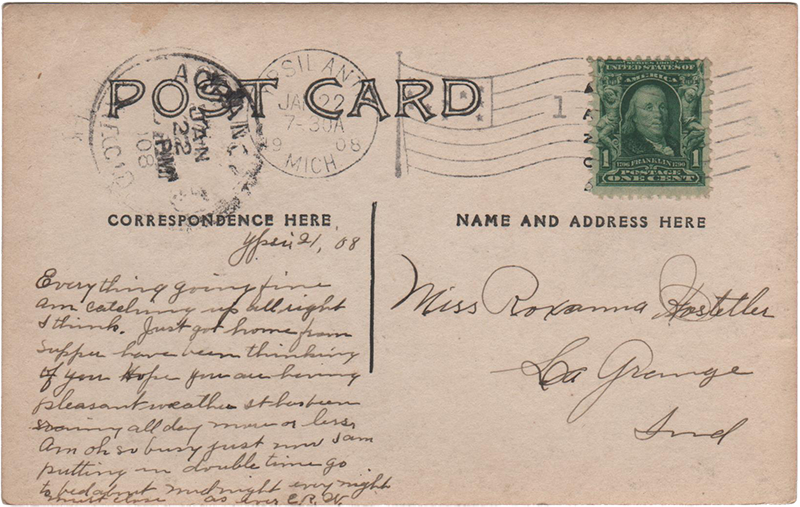 POST CARD
YPSILANTI
JAN 22
7-30A
1908
MICH
1
JAN
22
PM
08
SERIES 1902
UNITED STATES OF
AMERICA
1 1790 FRANKLIN 1790 1
POSTAGE
ONE CENT
CORRESPONDENCE HERE
Ypsi, 21, '08
Everything going fine
am catching up all right
I think. Just got home from
supper have been thinking
of you Hope you are having
pleasant weather it has been
raining all day more or less
Am oh so busy just now I am
putting in double time go
to bed about midnight every night
must close as ever C.R.W.
NAME AND ADDRESS HERE
Miss Roxanna Hostetler
La Grange
Ind